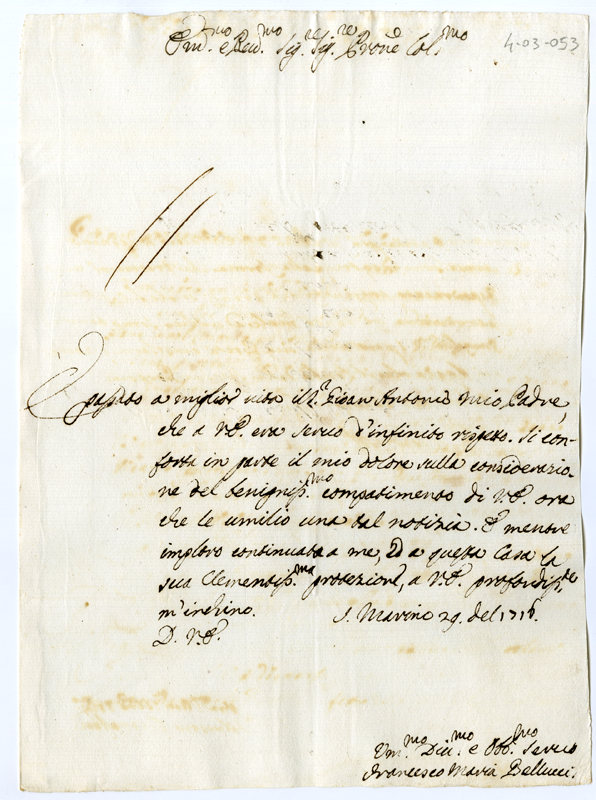 Em.mo e Rev.mo Sig.re Sig.re Prone Col.mo
4-03-053
È passato a miglior vita il S.r Gioan Antonio mio Padre,
che a V.E. era servo d'infinito rispetto. Si con-
forta in parte il mio dolore sulla considerazio-
ne del benigniss.mo compatimento di V.E. ora
che le umilio una tal notizia. E mentre
imploro continuata a me, ed a questa Casa la
sua Clementiss.ma protezione, a V.E. profondiss.te
m'inchino.
S. Marino 29. del 1716.
D. V.E.
Um.mo Div.mo e Obb.mo Servo
Francesco Maria Bellucci.